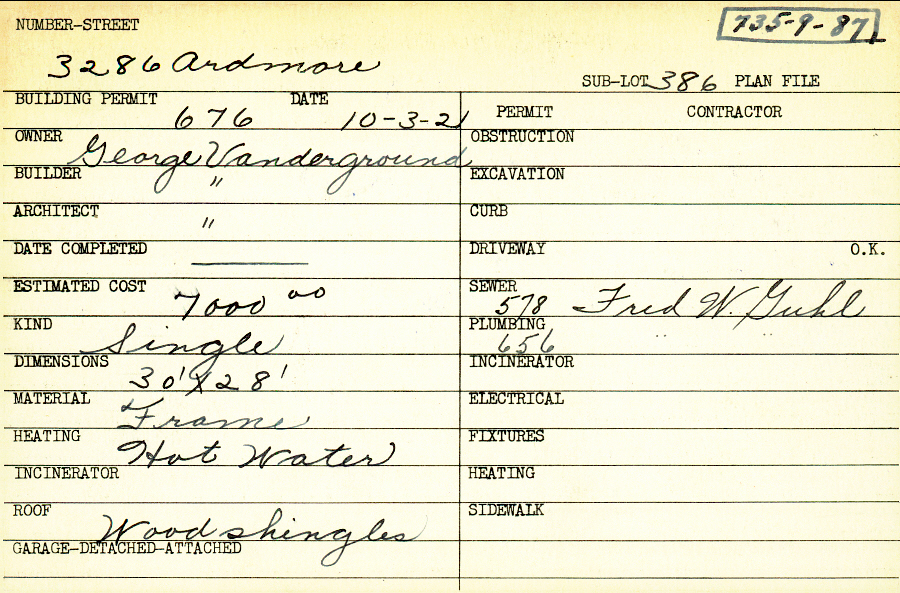 NUMBER-STREET
735-9-87
3286 Ardmore
SUB-LOT 386 PLAN FILE
BUILDING PERMIT 676 DATE 10-3-21
PERMIT CONTRACTOR
OWNER George Vanderground
OBSTRUCTION
BUILDER "
EXCAVATION
ARCHITECT "
CURB
DATE COMPLETED ———
DRIVEWAY O.K.
ESTIMATED COST 7000 00
SEWER 578 Fred W. Guhl
KIND Single
PLUMBING 656 " "
DIMENSIONS 30' X 28'
INCINERATOR
MATERIAL Frame
ELECTRICAL
HEATING Hot Water
FIXTURES
INCINERATOR
HEATING
ROOF Wood shingles
SIDEWALK
GARAGE-DETACHED-ATTACHED